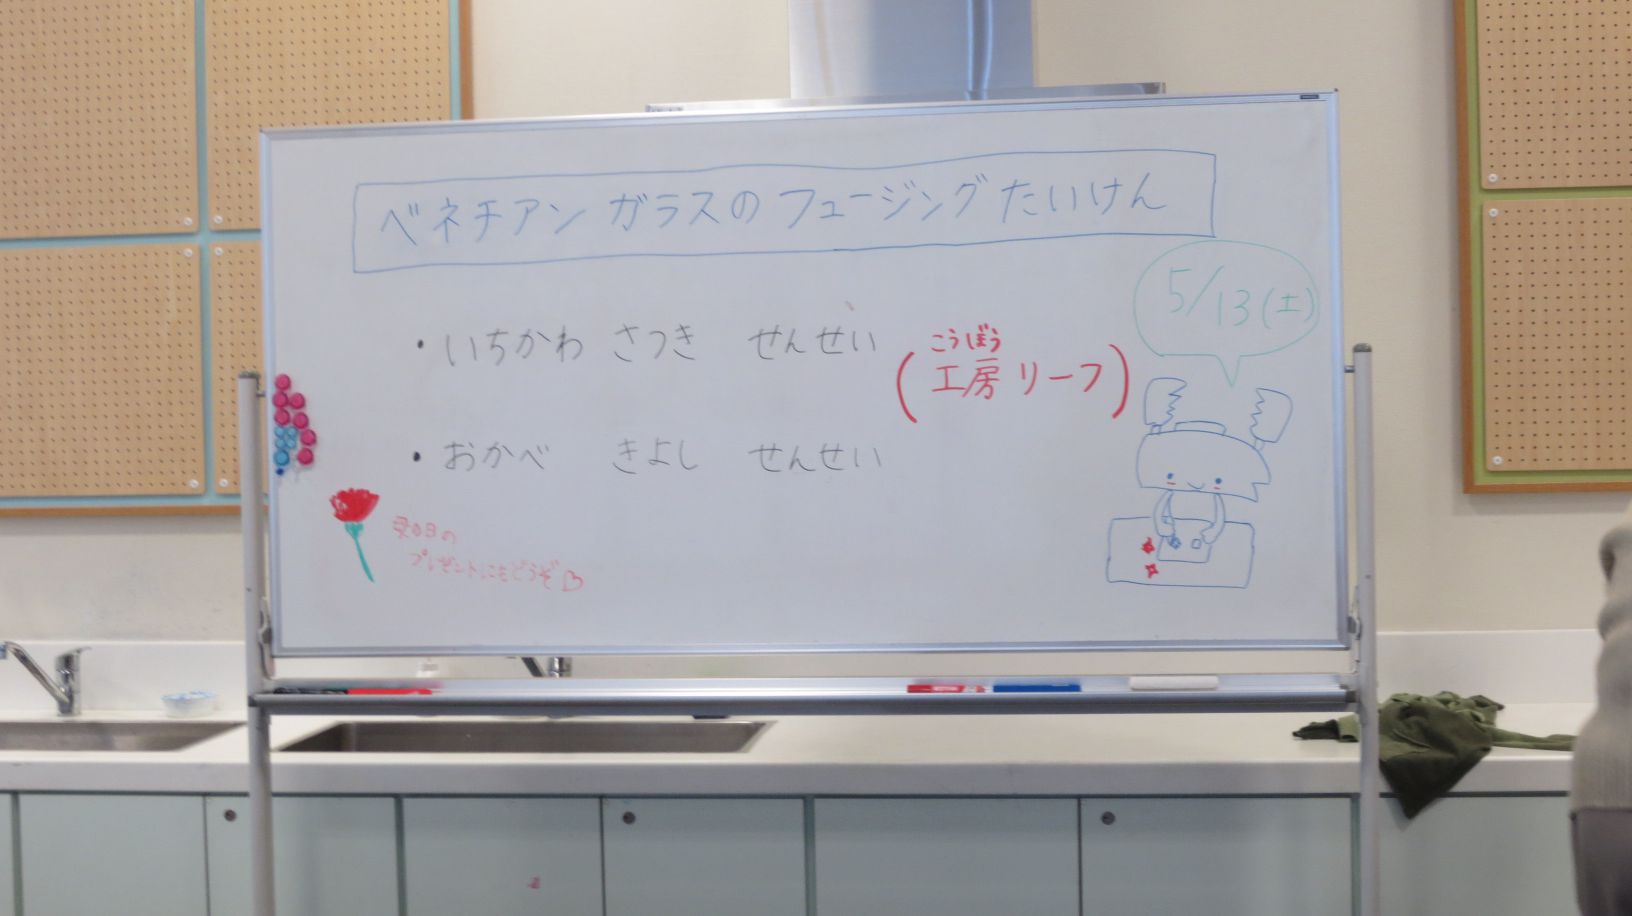 ベネチアン ガラスの フュージング たいけん
5/13(土)
・いちかわ さつき せんせい
こうぼう
(工房 リーフ)
・おかべ きよし せんせい
母の日の
プレゼントにもどうぞ♡